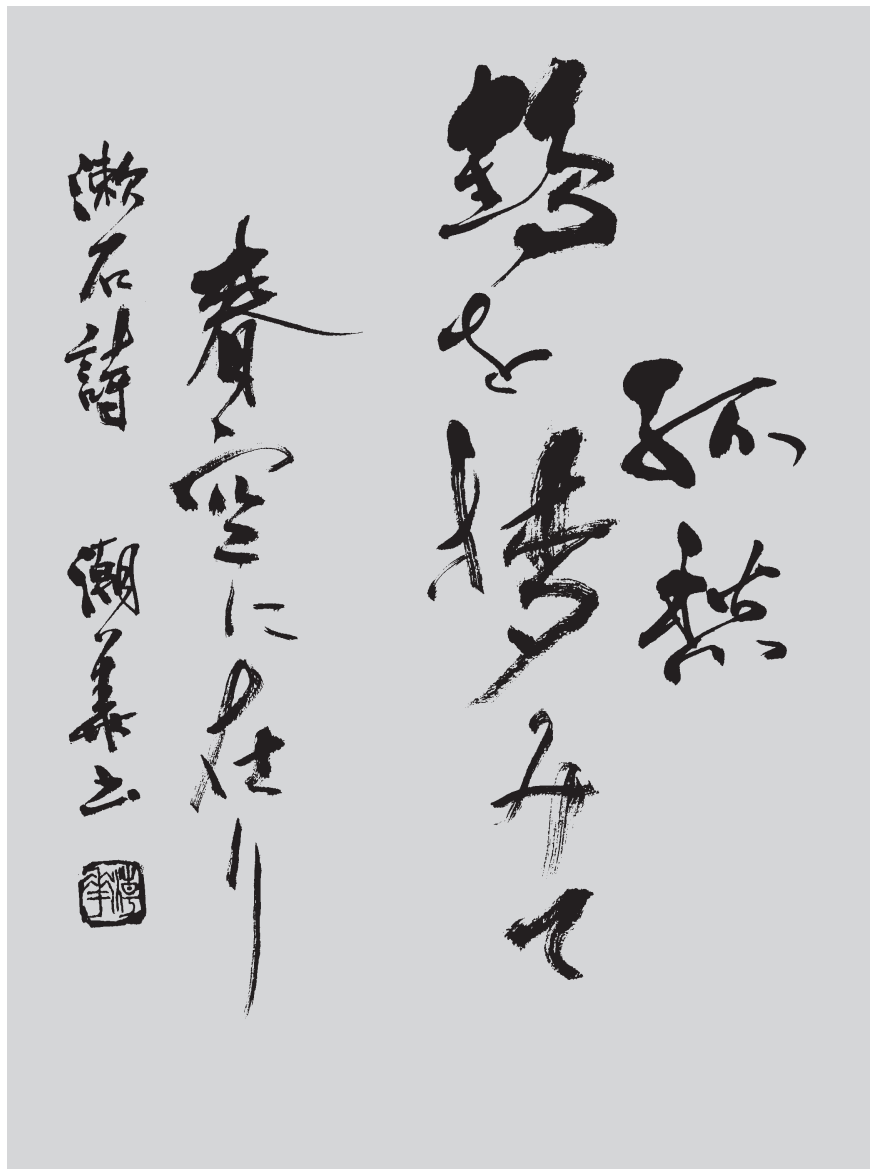 孤愁
鶴を夢みて
春空に在り
漱石詩　潮華書